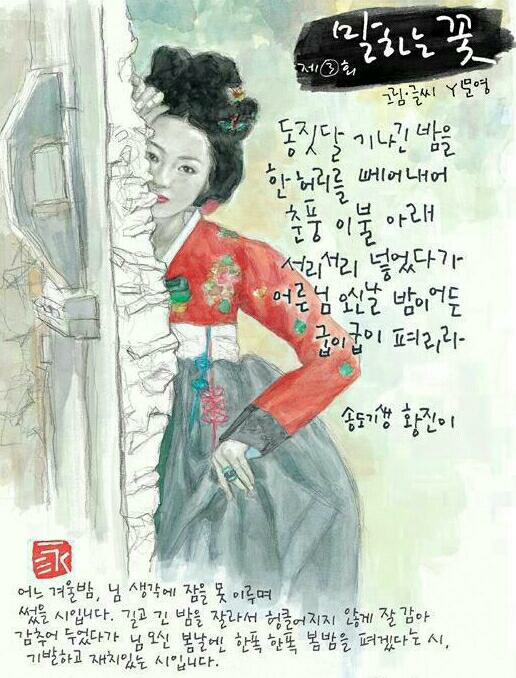 말하는 꽃
제③회
그림·글씨 Y문영
동짓달 기나긴 밤을
한 허리를 베어내어
춘풍 이불 아래
서리서리 넣었다가
어른님 오신날 밤이어든
굽이굽이 펴리라
송도기생 황진이
어느 겨울밤, 님 생각에 잠을 못 이루며
썼을 시입니다. 길고 긴 밤을 잘라서 헝클어지지 않게 잘 감아
감추어 두었다가 님 오신 봄날엔 한폭 한폭 봄밤을 펴겠다는 시,
기발하고 재치있는 시입니다.